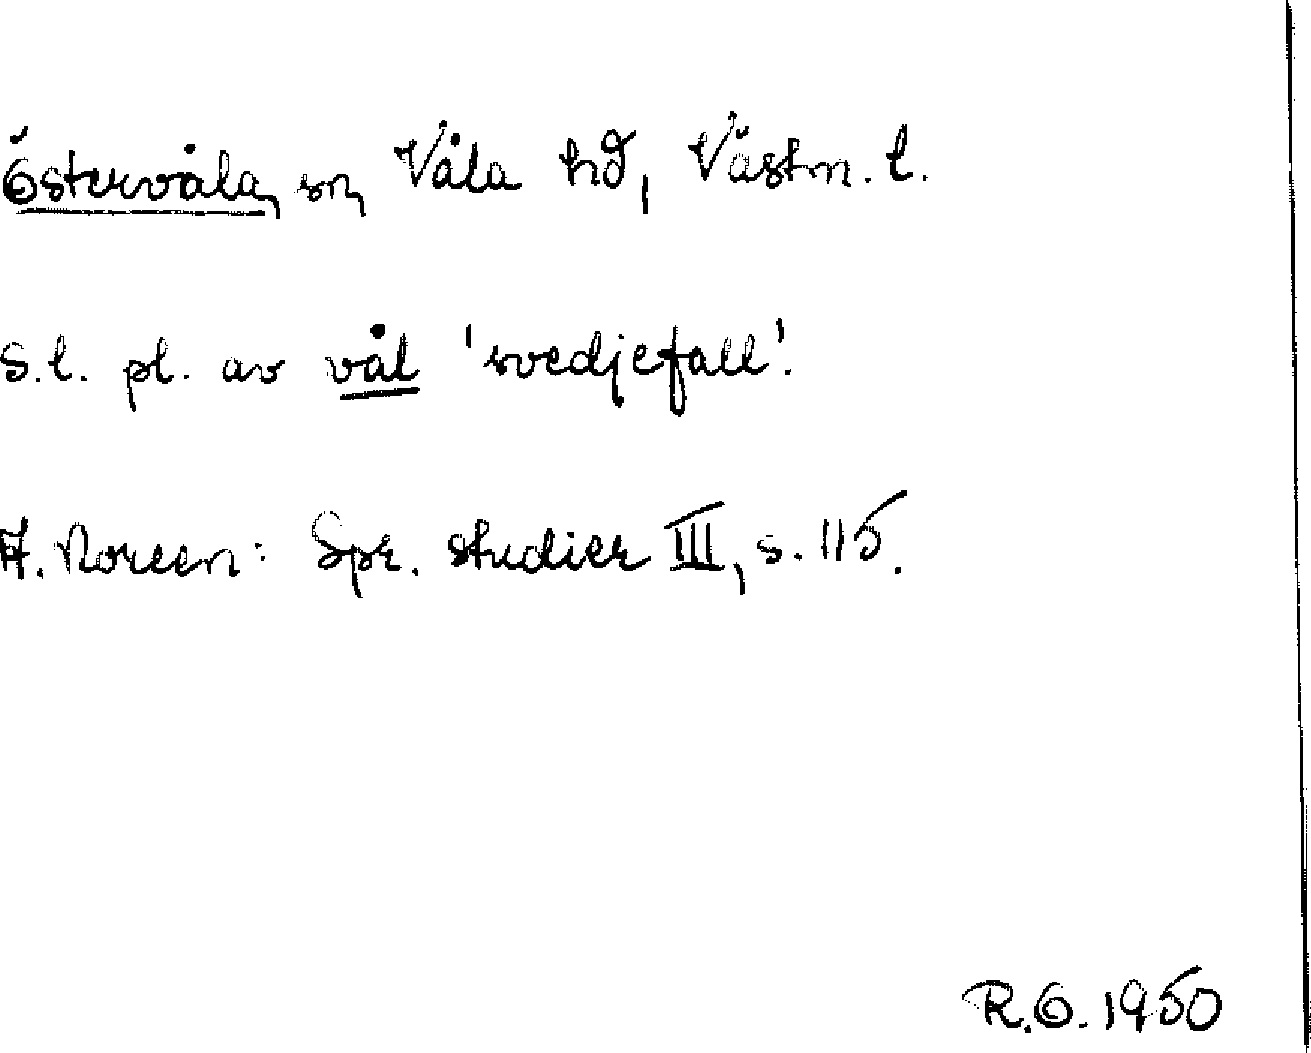 Östervåla, sn, Våla hd, Västm. l.
S.l. pl. av vål 'svedjefall'.
A. Noreen: Spr. studier III, s. 115.
R.O. 1950